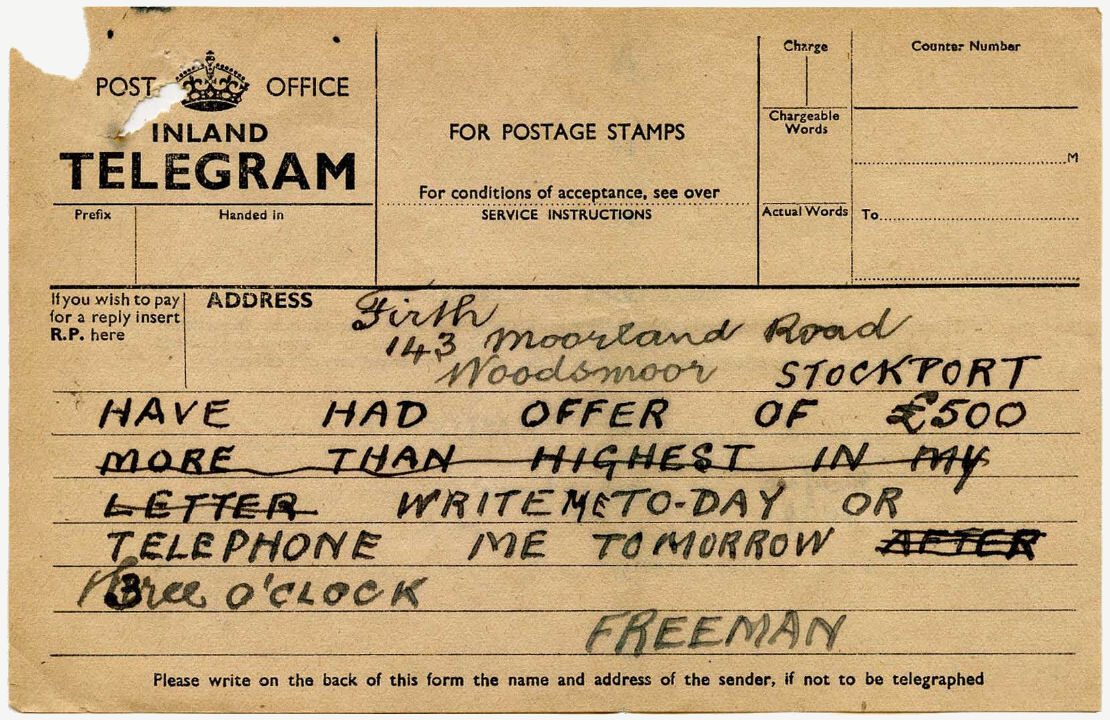 POST OFFICE
INLAND
TELEGRAM
Prefix
Handed in
FOR POSTAGE STAMPS
For conditions of acceptance, see over
SERVICE INSTRUCTIONS
Charge
Chargeable
Words
Actual Words
Counter Number
M
To
If you wish to pay
for a reply insert
R.P. here
ADDRESS
Firth
143 Moorland Road
Woodsmoor STOCKPORT
HAVE HAD OFFER OF £500
MORE THAN HIGHEST IN MY
LETTER WRITE ME TO-DAY OR
TELEPHONE ME TOMORROW AFTER
3 three O'CLOCK
FREEMAN
Please write on the back of this form the name and address of the sender, if not to be telegraphed